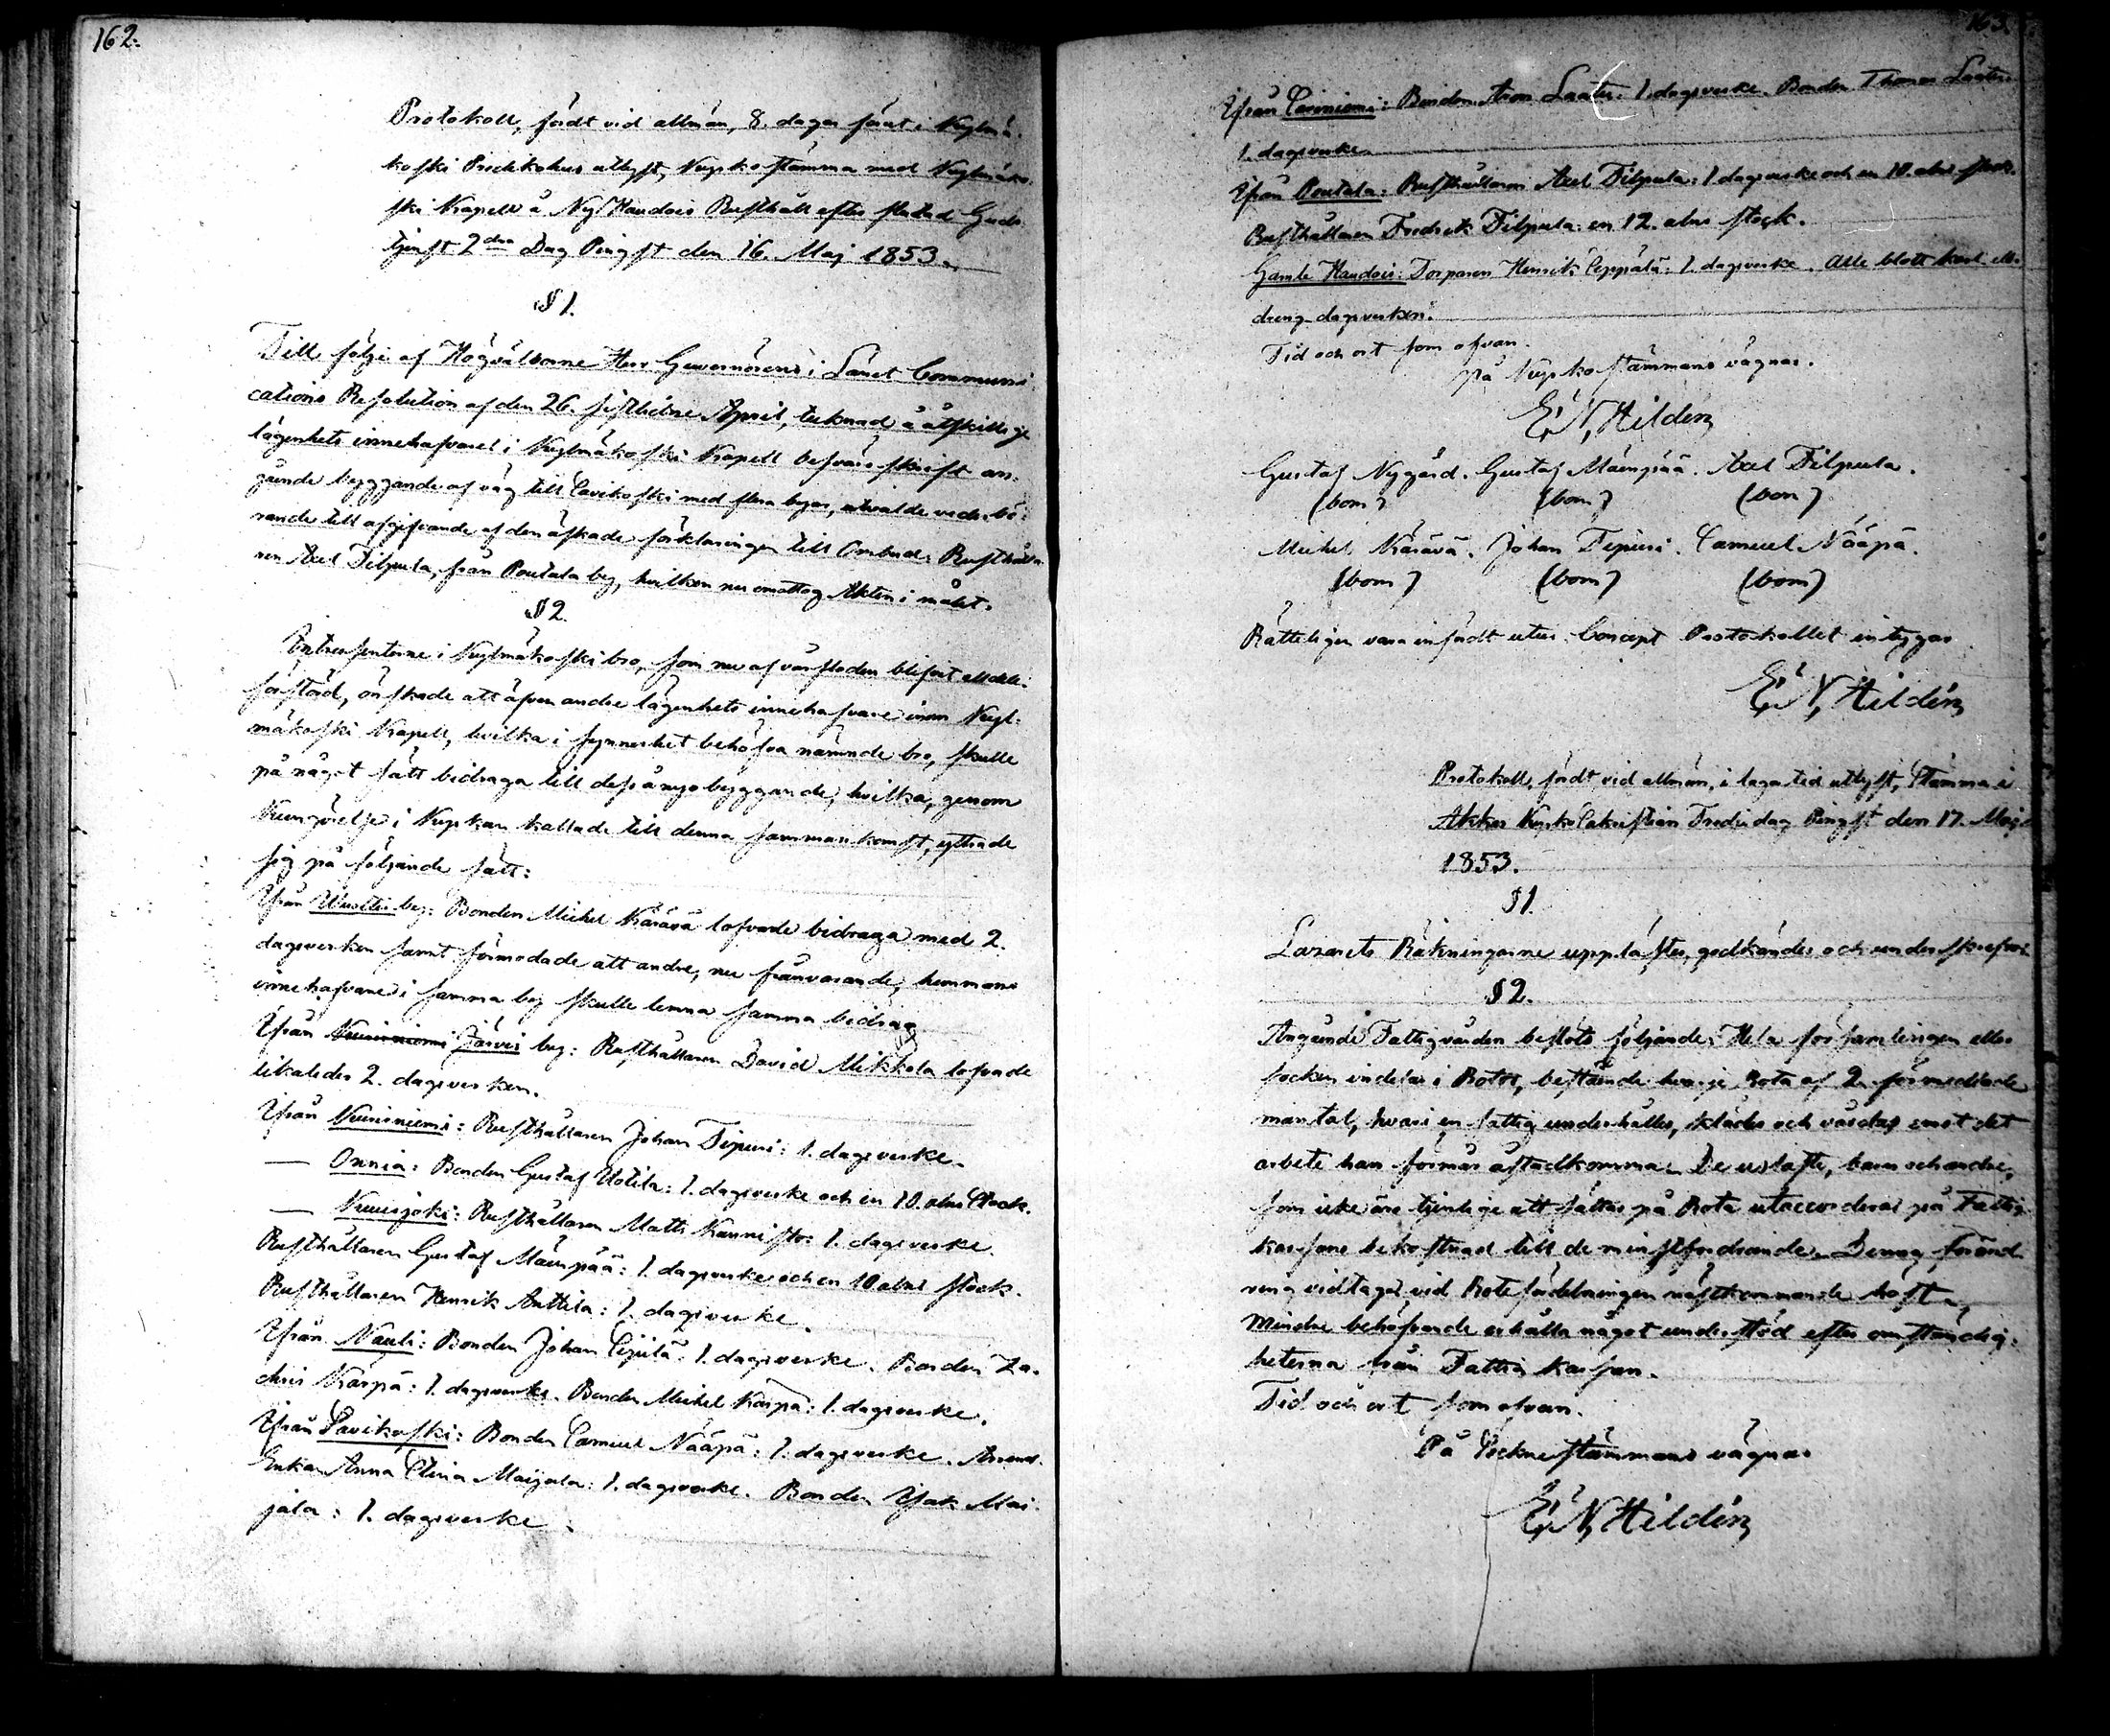 162.
Protokoll, fördt vid allmän, 8. dagar förut i Kylmä-
koski Predikohus utlyst, Kyrkostämma med Kylmäko-
ski Kapell å Ny Haudois Rusthåll efter slutad Guds
tjenst 2dra Dag Pingst den 16. Maj 1853.
§ 1.
Till följe af Högvälborne Herr Guvernörens i Länet Communi
cations Resolution af den 26. sistledne April, teknad å åtskillige
lägenhets innehafvares i Kylmäkoski Kapell besvärsskrift an-
gående byggande af väg till Savikoski med flera byar, utvalde vederbö-
rande till afgifvande af den äskade förklaringen till Ombud: Rusthålla-
ren Axel Filpula, från Poutala by, hvilken nu emottog Akten i målet.
§ 2.
Intressenterne i Kylmäkoski bro, som nu af vårfloden blifvit alldeles
förstörd, önskade att äfven andre lägenhets innehafvare inom Kyl-
mäkoski Kapell, hvilka i synnerhet behöfva nämnde bro, skulle
på något sätt bidraga till dess ånyo byggande, hvilka, genom
Kungörelse i Kyrkan kallade till denna sammankomst, yttrade
sig på följande sätt:
Ifrån Uusitti by: Bonden Michel Kärävä lofvade bidraga med 2.
dagsverken samt förmodade att andre, nu frånvarande, hemmans
innehafvare i samma by skulle lemna samma bidrag
Ifrån Kurisniemi Järvis by: Rusthållaren David Mikkola lofvade
likaledes 2. dagsverken.
Ifrån Kurisniemi: Rusthållaren Johan Tipuri: 1. dagsverke.
— Onnia: Bonden Gustaf Uotila: 1. dagsverke och en 10. alns Stock.
— Kurisjoki: Rusthållaren Matts Kannisto: 1. dagsverke.
Rusthållaren Gustaf Mäenpää: 1. dagsverke och en 10 alns stock.
Rusthållaren Henrik Anttila: 1. dagsverke.
Ifrån Nauli: Bonden Johan Sipilä: 1. dagsverke. Bonden Za-
chris Kärpä: 1. dagsverke. Bonden Michel Kärpä: 1. dagsverke.
Ifrån Savikoski: Bonden Samuel Nääpä: 1. dagsverke.
Enkan Anna Stina Maijala: 1. dagsverke. Bonden Isak Mai-
jala: 1. dagsverke.
163.
Ifrån Sarviniemi: Bonden Aron Laater: 1. dagsverke. Bonden Thomas Laater
1. dagsverke
Ifrån Poutala: Rusthållaren Axel Filpula: 1 dagsverke och en 10. alns stock.
Rusthållaren Fredrik Filpula: en 12. alns stock.
Gamle Haudois: Torparen Henrik Seppälä: 1. dagsverke. Alle blott karl eller
dreng dagsverken.
Tid och ort som ofvan.
på Kyrkostämmans vägnar.
E. N. Hildén
Gustaf Nygård. Gustaf Mäenpää. Axel Filpula.
(bom) (bom) (bom)
Michel Kärävä. Johan Tipuri. Samuel Nääpä.
(bom) (bom) (bom)
Rätteligen vara infördt utur Concept Protokollet intygar
E. N. Hildén
Protokoll, fördt vid allmän, i laga tid utlyst, Stämma i
Akkas Kyrko Sakristian Tredje dag Pingst den 17. Maj
1853.
§ 1.
Lazarets Räkningarne upplästes, godkändes och underskrefvos
§ 2.
Angående Fattigvården beslöts följande: Hela församlingen eller
socken indelas i Rotor, bestående hvarje Rota af 2. förmedlade
mantal, hvari en fattig underhålles, klädes och vårdas emot det
arbete han förmår åstadkomma. De urlasta, barn och andre,
som icke äro tjenlige att sättas på Rota utaccorderas på Fattig
kassans bekostnad till de minstfordrande. Denna föränd-
ring vidtages vid Rotefördelningen nästkommande höst.
Mindre behöfvande erhålla något understöd efter omständig-
heterna från Fattig kassan.
Tid och ort som ofvan.
På Sockne stämmans vägnar
E. N. Hildén